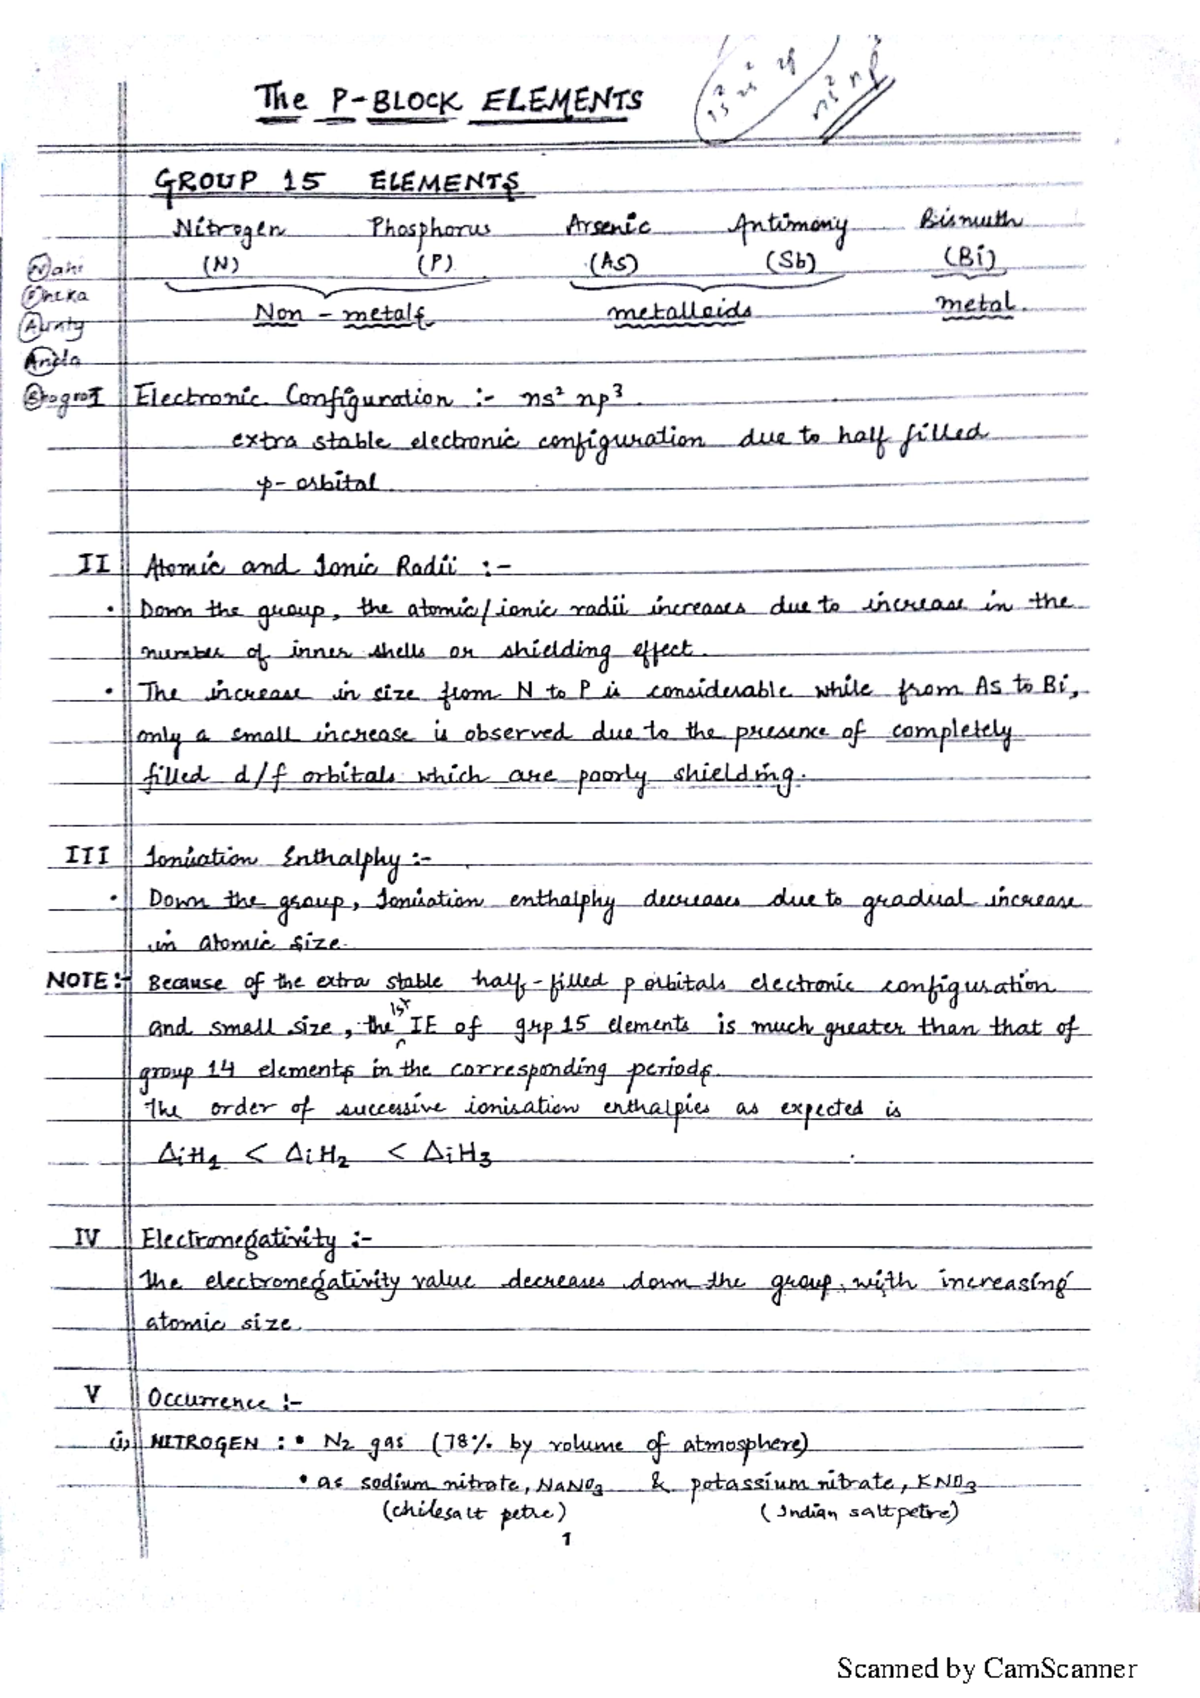 The P-BLOCK ELEMENTS
1s² 2s² 2p
ns² np
GROUP 15 ELEMENTS
Nitrogen Phosphorus Arsenic Antimony Bismuth
(N) (P) (As) (Sb) (Bi)
Non - metals metalloids metal.
Aunty
Anda
I Electronic Configuration :- ns² np³.
extra stable electronic configuration due to half filled
p- orbital.
II Atomic and Ionic Radii :-
• Down the group, the atomic/ionic radii increases due to increase in the
number of inner shells or shielding effect.
• The increase in size from N to P is considerable while from As to Bi,
only a small increase is observed due to the presence of completely
filled d/f orbitals which are poorly shielding.
III Ionisation Enthalphy :-
• Down the group, Ionisation enthalphy decreases due to gradual increase
in atomic size.
NOTE :- Because of the extra stable half-filled p orbitals electronic configuration
and small size, the 1st IE of grp 15 elements is much greater than that of
group 14 elements in the corresponding periods.
The order of successive ionisation enthalpies as expected is
ΔiH1 < ΔiH2 < ΔiH3
IV Electronegativity :-
The electronegativity value decreases down the group with increasing
atomic size.
V Occurrence :-
(i) NITROGEN : • N2 gas (78% by volume of atmosphere)
• as sodium nitrate, NaNO3 & potassium nitrate, KNO3
(chilesalt petre) (Indian saltpetre)
1
Scanned by CamScanner